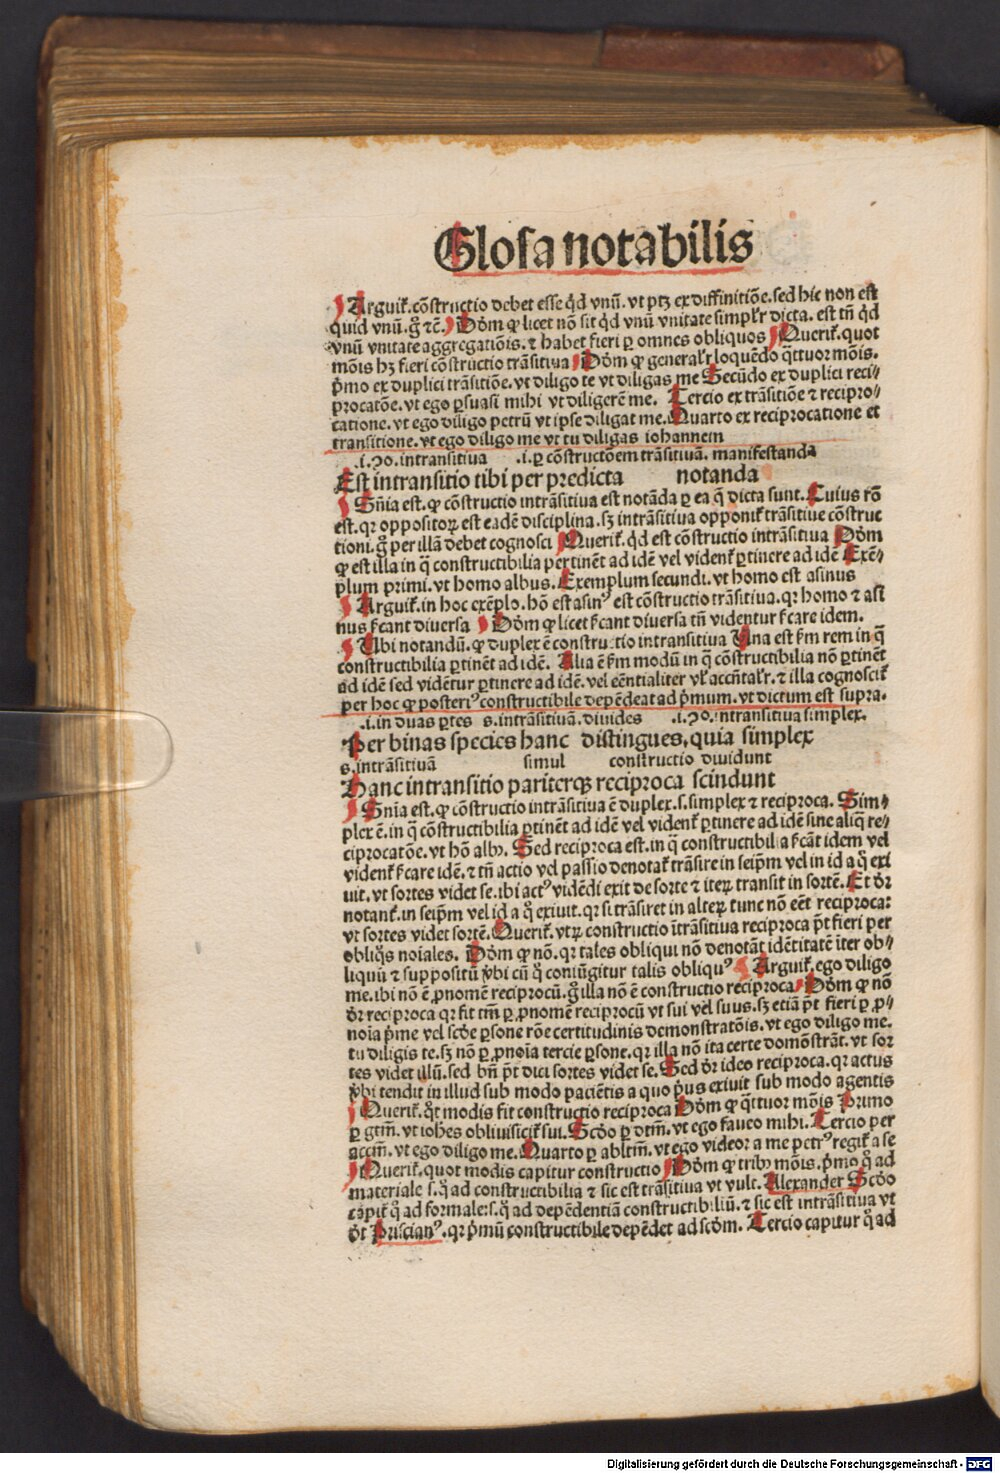 Glosa notabilis
Arguit᷑. cõstructio debet esse q̇d vnũ. vt ptꝫ ex diffinitiõe. sed hic non est
quid vnũ. g̊ ⁊c̃. Dõm ꝙ licet nõ sit q̇d vnũ vnitate simpl'r dicta. est tñ q̇d
vnũ vnitate aggregatiõis. ⁊ habet fieri ꝑ omnes obliquos Querit᷑. quot
mõis hꝫ fieri cõstructio trãsitiua Dõm ꝙ general'r loquẽdo q̃tuor mõis.
p̃mo ex duplici trãsitiõe. vt diligo te vt diligas me Secũdo ex duplici reci⸗
procatõe. vt ego ꝑsuasi mihi vt diligerẽ me. Tercio ex trãsitiõe ⁊ recipro⸗
catione. vt ego diligo petrũ vt ipse diligat me. Quarto ex reciprocatione et
transitione. vt ego diligo me vt tu diligas iohannem
.i. ↄ̃o. intransitiua .i. ꝑ cõstructõem trãsitiuã. manifestanda
Est intransitio tibi per predicta notanda
Sñia est. ꝙ cõstructio intrãsitiua est notãda ꝑ ea q̃ dicta sunt. Cuius rõ
est. qꝛ oppositoꝝ est eadẽ disciplina. sꝫ intrãsitiua opponit᷑ trãsitiue cõstruc
tioni. g̊ per illã debet cognosci Querit᷑. q̇d est cõstructio intrãsitiua Dõm
ꝙ est illa in q̃ constructibilia pertinẽt ad idẽ vel vident᷑ ꝑtinere ad idẽ Exẽ⸗
plum primi. vt homo albus. Exemplum secundi. vt homo est asinus
Arguit᷑. in hoc exẽplo. hõ est asinꝰ est cõstructio trãsitiua. qꝛ homo ⁊ asi
nus s̃cant diuersa Dõm ꝙ licet s̃cant diuersa tñ videntur s̃care idem.
Ubi notandũ. ꝙ duplex ẽ constructio intransitiua Una est s̃m rem in q̃
constructibilia ꝑtinẽt ad idẽ. Alia ẽ s̃m modũ in q̃ cõstructibilia nõ ꝑtinẽt
ad idẽ sed vidẽtur ꝑtinere ad idẽ. vel eẽntialiter vl' accñtal'r. ⁊ illa cognoscit᷑
per hoc ꝙ posteriꝰ constructibile depẽdeat ad p̃mum. vt dictum est supra.
.i. in duas ꝑtes s. intrãsitiuã. diuides .i. ↄ̃o. intransitiua simplex.
Per binas species hanc distingues, quia simplex
s. intrãsitiuã simul constructio diuidunt
Hanc intransitio pariterqꝫ reciproca scindunt
Sñia est. ꝙ cõstructio intrãsitiua ẽ duplex. s. simplex ⁊ reciproca. Sim⸗
plex ẽ. in q̃ cõstructibilia ꝑtinẽt ad idẽ vel vident᷑ ꝑtinere ad idẽ sine aliq̃ re⸗
ciprocatõe. vt hõ albꝰ. Sed reciproca est. in q̃ constructibilia s̃cãt idem vel
vident᷑ s̃care idẽ. ⁊ tñ actio vel passio denotat᷑ trãsire in seip̃m vel in id a q̊ exi
uit. vt sortes videt se. ibi actꝰ vidẽdi exit de sorte ⁊ iteꝝ transit in sortẽ. Et dr̃
notant᷑. in seip̃m vel id a q̊ exiuit. qꝛ si trãsiret in alteꝝ tunc nõ eẽt reciproca:
vt sortes videt sortẽ. Querit᷑. vtꝝ constructio ĩtrãsitiua reciproca p̃t fieri per
obliq̃s noĩales. Dõm ꝙ nõ. qꝛ tales obliqui nõ denotãt idẽtitatẽ ĩter ob⸗
liquũ ⁊ suppositũ v̾bi cũ q̊ coniũgitur talis obliquꝰ Arguit᷑. ego diligo
me. ibi nõ ẽ ꝓnomẽ reciprocũ. g̊ illa nõ ẽ constructio reciproca Dõm ꝙ nõ
dr̃ reciproca qꝛ fit tm̃ ꝑ ꝓnomẽ reciprocũ vt sui vel suus. sꝫ etiã p̃t fieri ꝑ ꝓ⸗
noĩa p̃me vel scd̃e ꝑsone rõe certitudinis demonstratõis. vt ego diligo me.
tu diligis te. sꝫ nõ ꝑ ꝓnoĩa tercie ꝑsone. qꝛ illa nõ ita certe domõstrãt. vt sor
tes videt illũ. sed bñ p̃t dici sortes videt se. Sed dr̃ ideo reciproca. qꝛ actus
v̾bi tendit in illud sub modo paciẽtis a quo p̃us exiuit sub modo agentis
Querit᷑. q̊t modis fit constructio reciproca Dõm ꝙ q̃tuor mõis Primo
ꝑ gtm̃. vt iohes obliuiscit᷑ sui. Scd̃o ꝑ dtm̃. vt ego faueo mihi. Tercio per
accm̃. vt ego diligo me. Quarto ꝑ abltm̃. vt ego videor a me petrꝰ regit᷑ a se
Querit᷑. quot modis capitur constructio Dõm ꝙ tribꝰ mõis. p̃mo q̊ ad
materiale s. q̊ ad constructibilia ⁊ sic est trãsitiua vt vult. Alexander Scd̃o
capit᷑ q̊ ad formale: s. q̊ ad depẽdentiã constructibiliũ. ⁊ sic est intrãsitiua vt
dt̃ Priscianꝰ. qꝛ p̃mũ constructibile depẽdet ad scd̃m. Tercio capitur q̊ ad
Digitalisierung gefördert durch die Deutsche Forschungsgemeinschaft - DFG